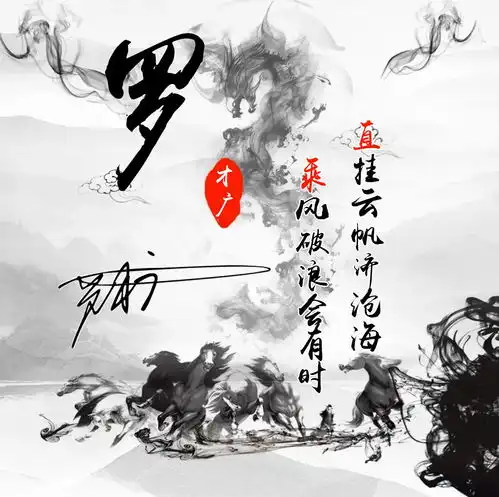 罗
才广
罗才广
乘风破浪会有时
直挂云帆济沧海